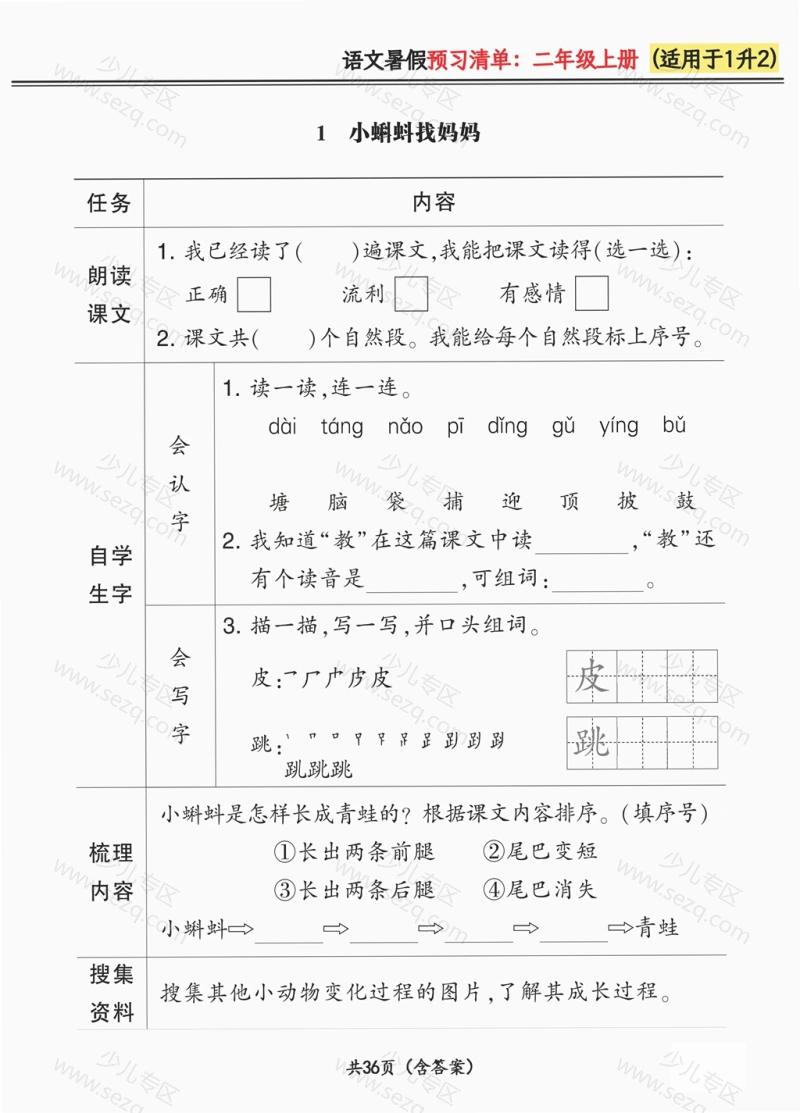 语文暑假预习清单：二年级上册 (适用于1升2)
1 小蝌蚪找妈妈
任务 内容
朗读课文
1. 我已经读了(  )遍课文,我能把课文读得(选一选)：
正确 □ 流利 □ 有感情 □
2. 课文共(  )个自然段。我能给每个自然段标上序号。
自学生字
会认字
1. 读一读,连一连。
dài táng nǎo pī dǐng gǔ yíng bǔ
塘 脑 袋 捕 迎 顶 披 鼓
2. 我知道“教”在这篇课文中读________,“教”还
有个读音是________,可组词：________。
会写字
3. 描一描,写一写,并口头组词。
皮：
皮
跳：
跳
梳理内容
小蝌蚪是怎样长成青蛙的？根据课文内容排序。(填序号)
①长出两条前腿 ②尾巴变短
③长出两条后腿 ④尾巴消失
小蝌蚪⇨______⇨______⇨______⇨______⇨青蛙
搜集资料
搜集其他小动物变化过程的图片,了解其成长过程。
共36页（含答案）
少儿专区
www.sezq.com